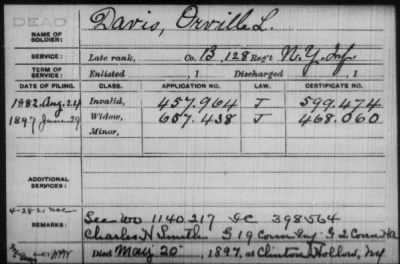 DEAD
NAME OF SOLDIER: Davis, Orville L.
SERVICE: Late rank, Co. B, 128 Reg't N.Y. Inf.
TERM OF SERVICE: Enlisted , 1 Discharged , 1
DATE OF FILING. CLASS. APPLICATION NO. LAW. CERTIFICATE NO.
1882, Aug. 24 Invalid, 457.964 J 599.474
1897 June 29 Widow, 657.438 J 468.060
Minor,
ADDITIONAL SERVICES:
4-28-21
REMARKS: See WO 1140217 WC 398564
Charles H Smith G 19 Conn Inf G 2 Conn HA
Died May 20", 1897, at Clinton Hollow, NY